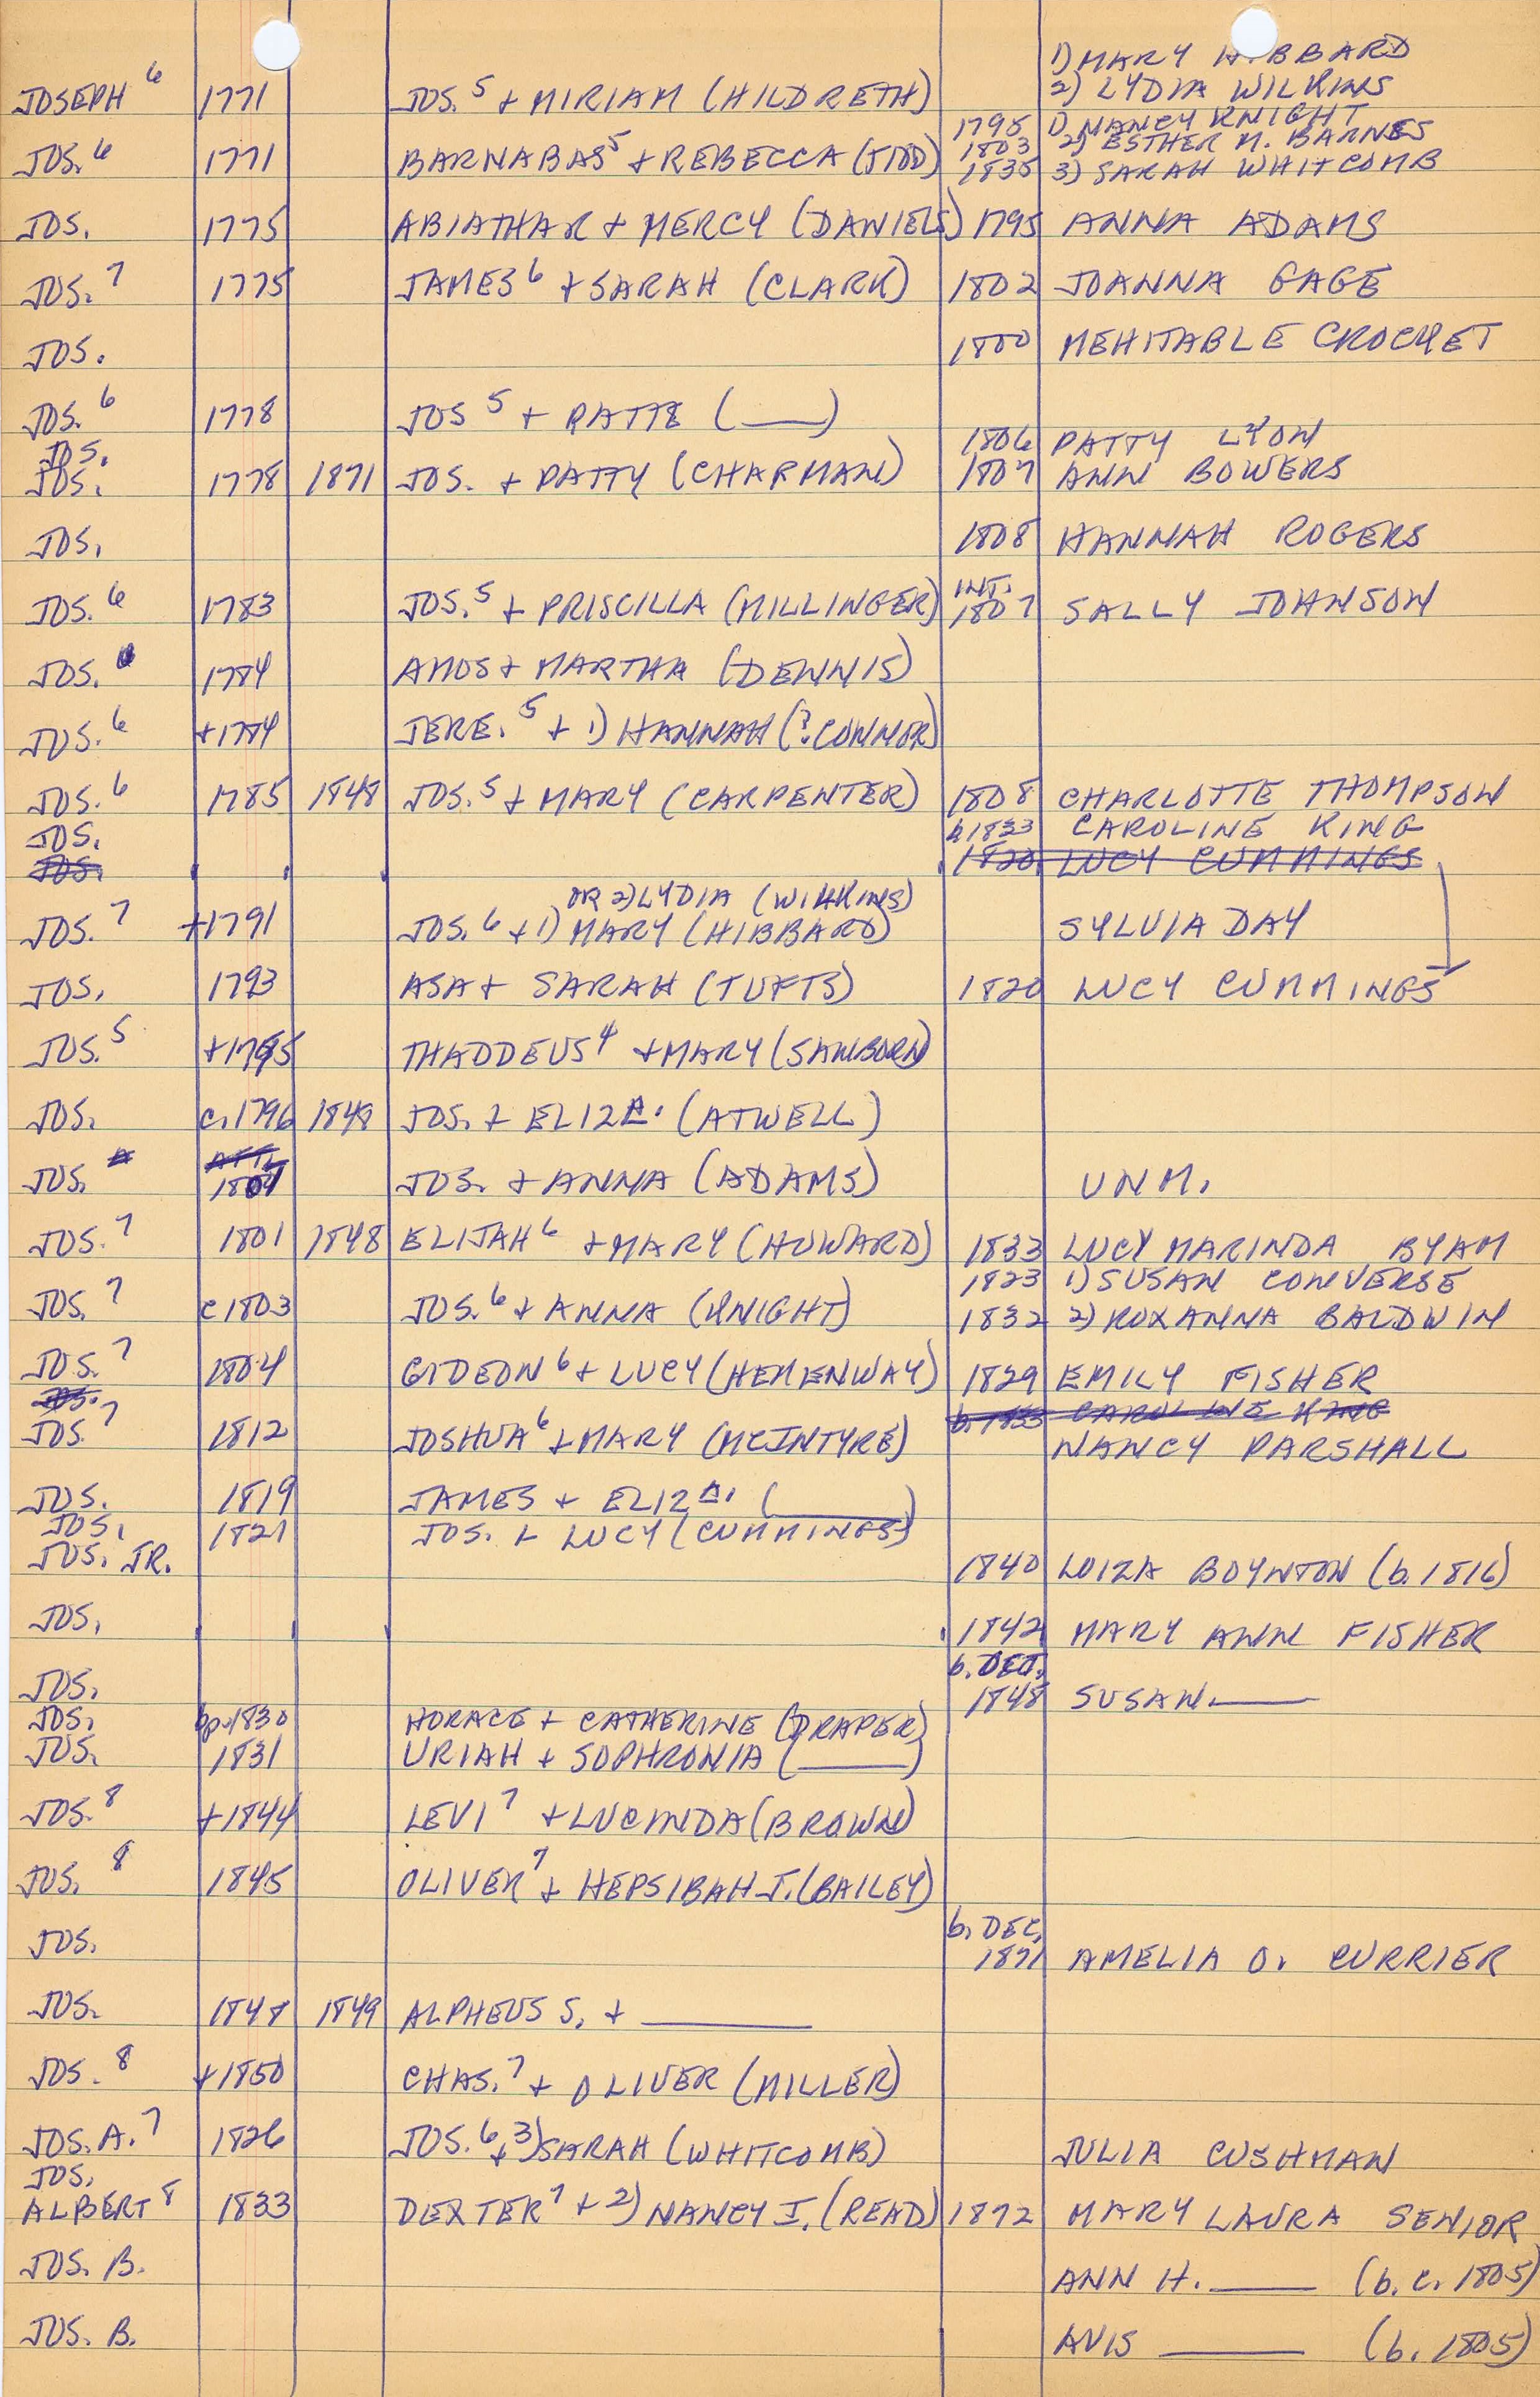 1) MARY H BBARD
JOSEPH 6 1771 JOS. 5 + MIRIAM (HILDRETH) 2) LYDIA WILKINS
1795 1) NANCY KNIGHT
1803 2) ESTHER M. BARNES
JOS. 6 1771 BARNABAS 5 + REBECCA (JUDD) 1835 3) SARAH WHITCOMB
JOS. 1775 ABIATHAR + MERCY (DANIELS) 1795 ANNA ADAMS
JOS. 7 1775 JAMES 6 + SARAH (CLARK) 1802 JOANNA GAGE
JOS. 1800 MEHITABLE CROCKET
JOS. 6 1778 JOS 5 + PATTE (___)
JOS. 1806 PATTY LYON
JOS. 1778 1871 JOS. + PATTY (CHAPMAN) 1807 ANN BOWERS
JOS. 1808 HANNAH ROGERS
INT.
JOS. 6 1783 JOS. 5 + PRISCILLA (MILLINGER) 1807 SALLY JOHNSON
JOS. 1784 AMOS + MARTHA (DENNIS)
JOS. 6 +1784 JERE. 5 + 1) HANNAH (?CONNOR)
JOS. 6 1785 1848 JOS. 5 + MARY (CARPENTER) 1808 CHARLOTTE THOMPSON
JOS. b.1833 CAROLINE KING
JOS. 1820 LUCY CUMMINGS
OR 2) LYDIA (WILKINS)
JOS. 7 +1791 JOS. 6 + 1) MARY (HIBBARD) SYLVIA DAY
JOS. 1793 ASA + SARAH (TUFTS) 1820 LUCY CUMMINGS
JOS. 5 +1795 THADDEUS 4 + MARY (SANBORN)
JOS. c.1796 1848 JOS. + ELIZA. (ATWELL)
AFTL
JOS. 1801 JOS. + ANNA (ADAMS) UNM.
JOS. 7 1801 1848 ELIJAH 6 + MARY (HOWARD) 1833 LUCY MARINDA BYAM
1823 1) SUSAN CONVERSE
JOS. 7 c1803 JOS. 6 + ANNA (KNIGHT) 1832 2) ROXANNA BALDWIN
JOS. 7 1804 GIDEON 6 + LUCY (HEMENWAY) 1829 EMILY FISHER
JOS. b.1833 CAROLINE KING
JOS. 7 1812 JOSHUA 6 + MARY (MCINTYRE) NANCY PARSHALL
JOS. 1819 JAMES + ELIZA. (___)
JOS. 1821 JOS. + LUCY (CUMMINGS)
JOS. JR. 1840 LOIZA BOYNTON (b. 1816)
JOS. 1842 MARY ANN FISHER
b. OCT.
JOS. 1848 SUSAN ___
JOS. bp.1830 HORACE + CATHERINE (DRAPER)
JOS. 1831 URIAH + SOPHRONIA (___)
JOS. 8 +1844 LEVI 7 + LUCINDA (BROWN)
JOS. 8 1845 OLIVER 7 + HEPSIBAH J. (BAILEY)
b. DEC.
JOS. 1871 AMELIA O. CURRIER
JOS. 1848 1849 ALPHEUS S. + ___
JOS. 8 +1850 CHAS. 7 + OLIVER (MILLER)
JOS. A. 7 1826 JOS. 6 + 3) SARAH (WHITCOMB) JULIA CUSHMAN
JOS.
ALBERT 8 1833 DEXTER 7 + 2) NANCY J. (READ) 1872 MARY LAURA SENIOR
JOS. B. ANN H. ___ (b. c. 1805)
JOS. B. AVIS ___ (b. 1805)